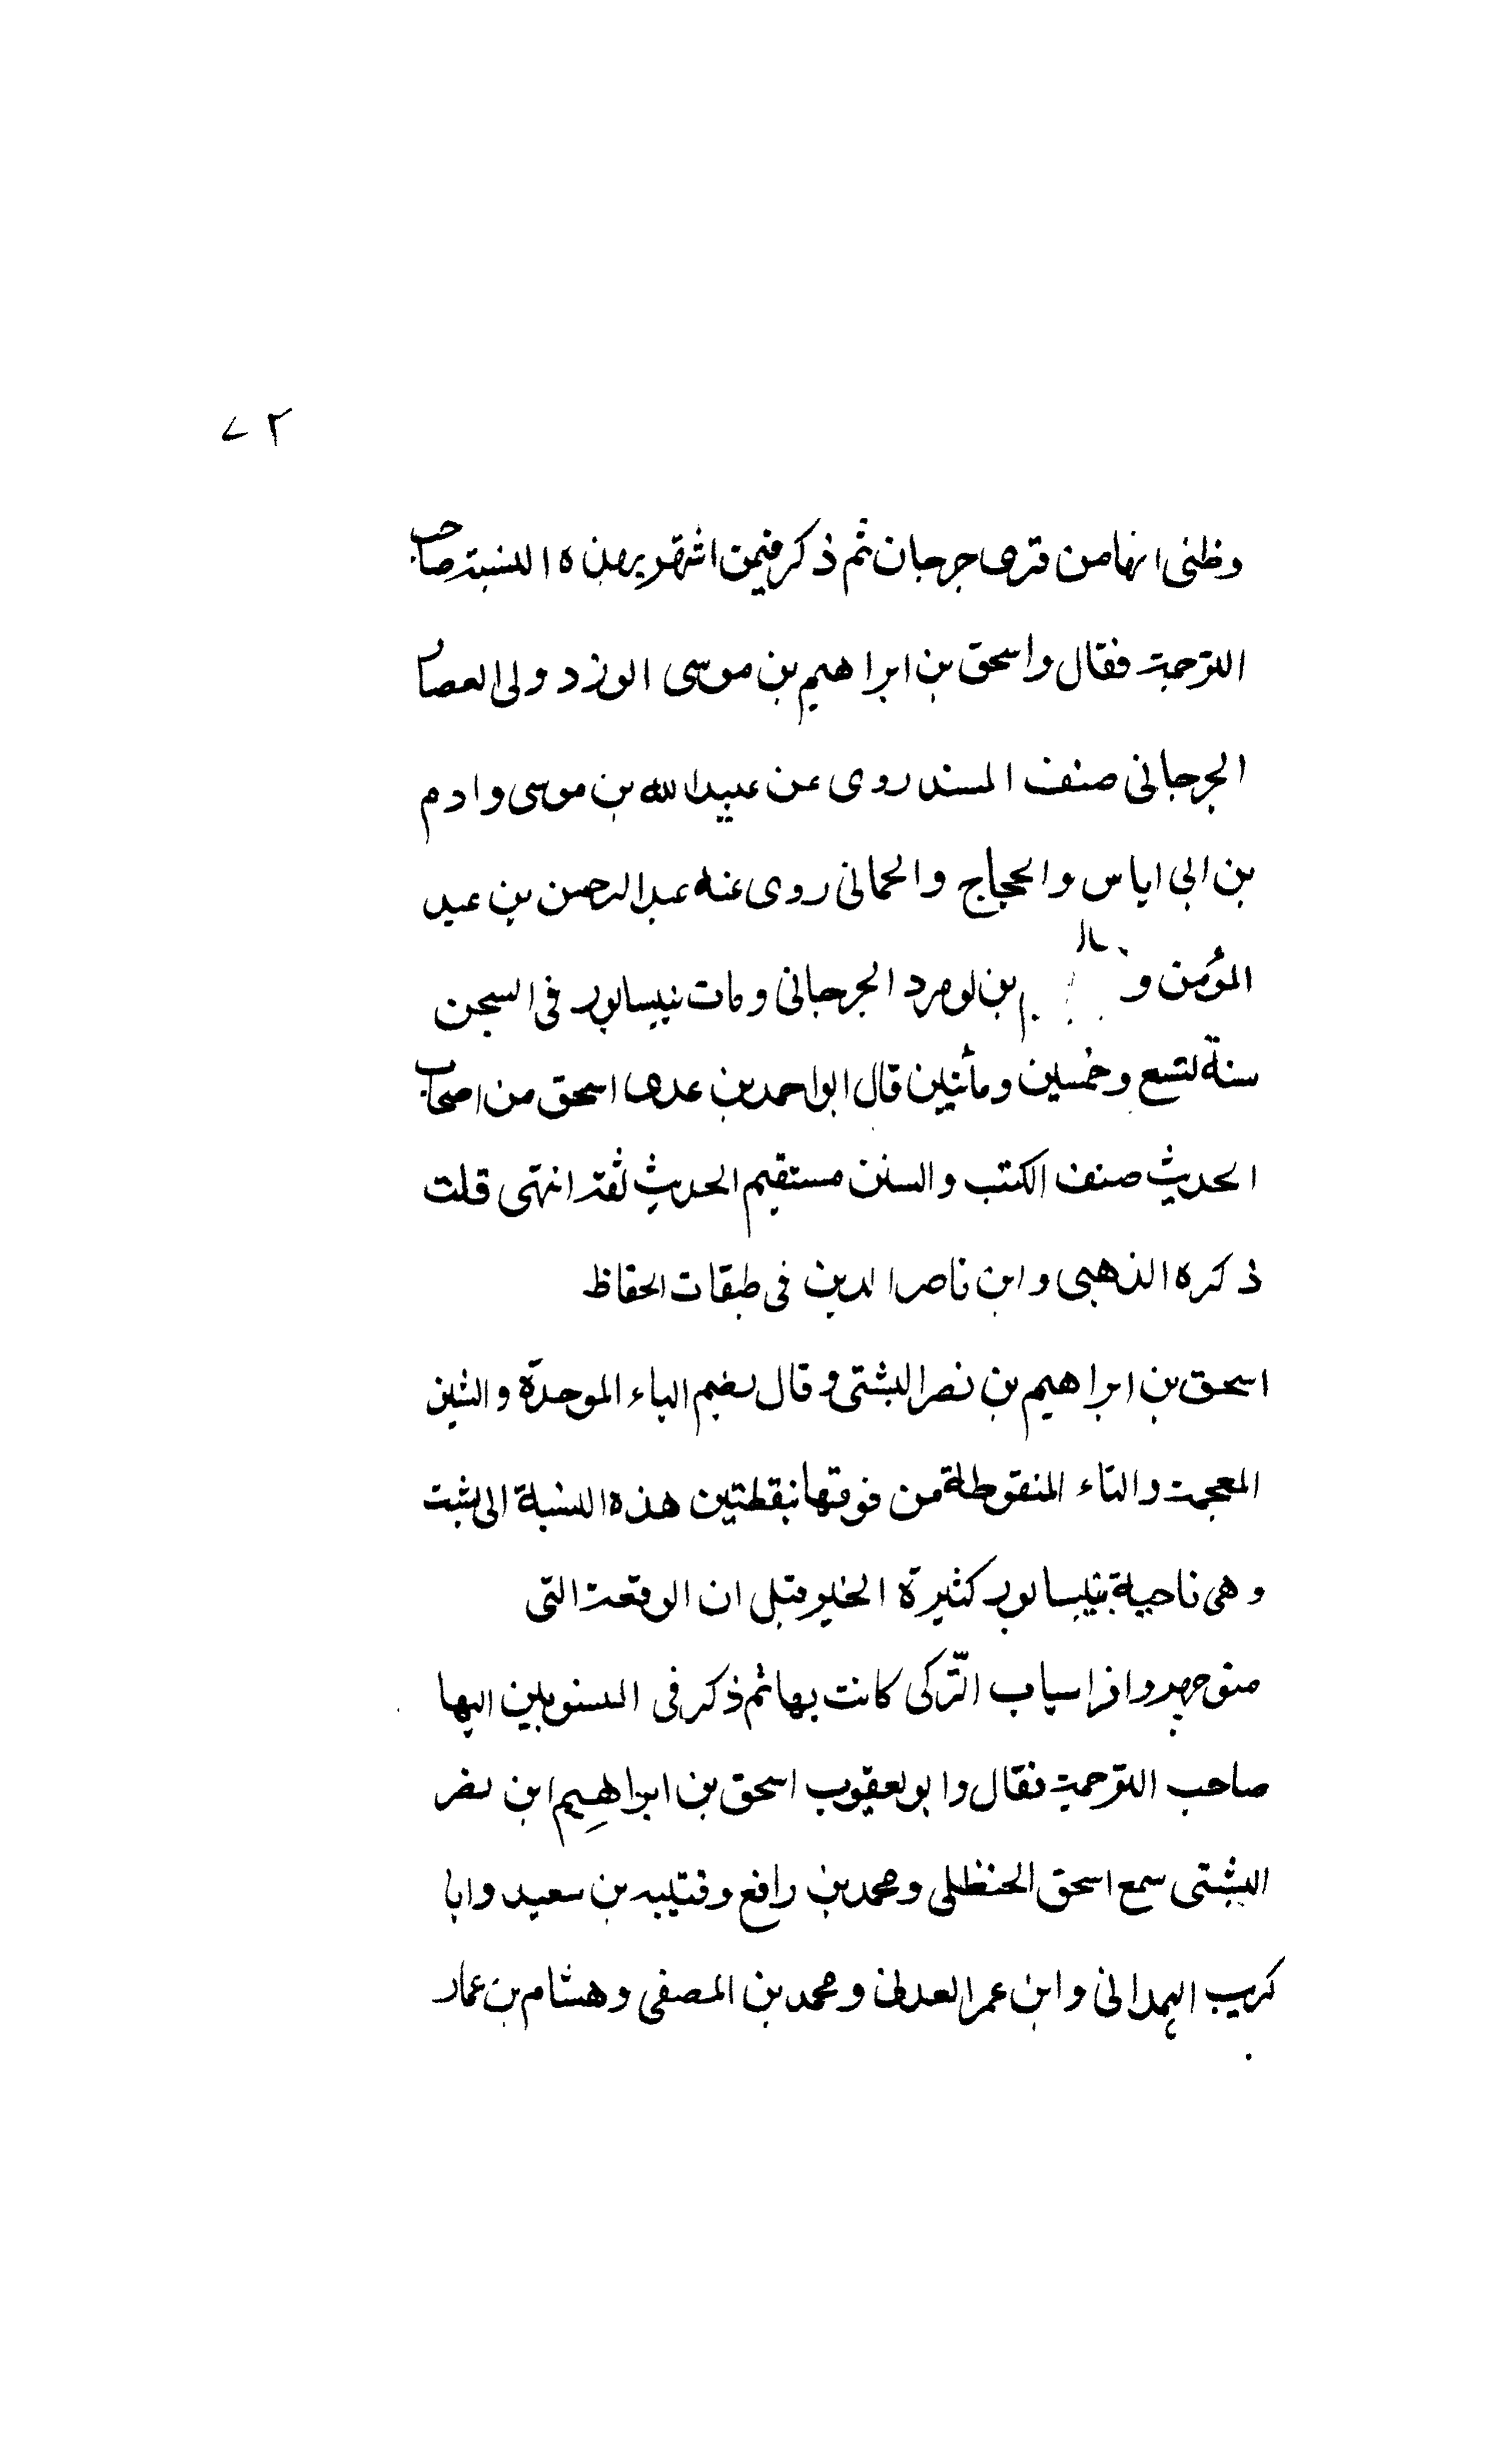 ٧٢
وظنى انها من قرى جرجان ثم ذكر فيمن اشتهر بهذه النسبة صاحب
الترجمة فقال واسحق بن ابراهيم بن موسى الوزدولى العصار
الجرجانى صنف المسند روى عن عبيد الله بن موسى وادم
بن ابى اياس والحجاج والحمانى روى عنه عبد الرحمن بن عبد
المؤمن و بن نومرد الجرجانى ومات بنيسابور فى السجن
سنة تسع وخمسين ومأتين قال ابو احمد بن عدى اسحق من اصحاب
الحديث صنف الكتب والسنن مستقيم الحديث ثقة انتهى قلت
ذكره الذهبى وابن ناصر الدين فى طبقات الحفاظ
اسحق بن ابراهيم بن نصر البشتى وقال بضم الباء الموحدة والشين
المعجمة والتاء المنقوطة من فوقها بنقطتين هذه النسبة الى بشت
وهى ناحية بنيسابور كثيرة الخير قبل ان الوقعة التى
منوجهر وافراسياب التركى كانت بها ثم ذكر فى المنسوبين اليها
صاحب الترجمة فقال وابو يعقوب اسحق بن ابراهيم ابن نصر
البشتى سمع اسحق الحنظلى ومحمد بن رافع وقتيبه بن سعيد وابا
كريب الهمدانى وابن عمر العدنى ومحمد بن المصفى وهشام بن عمار